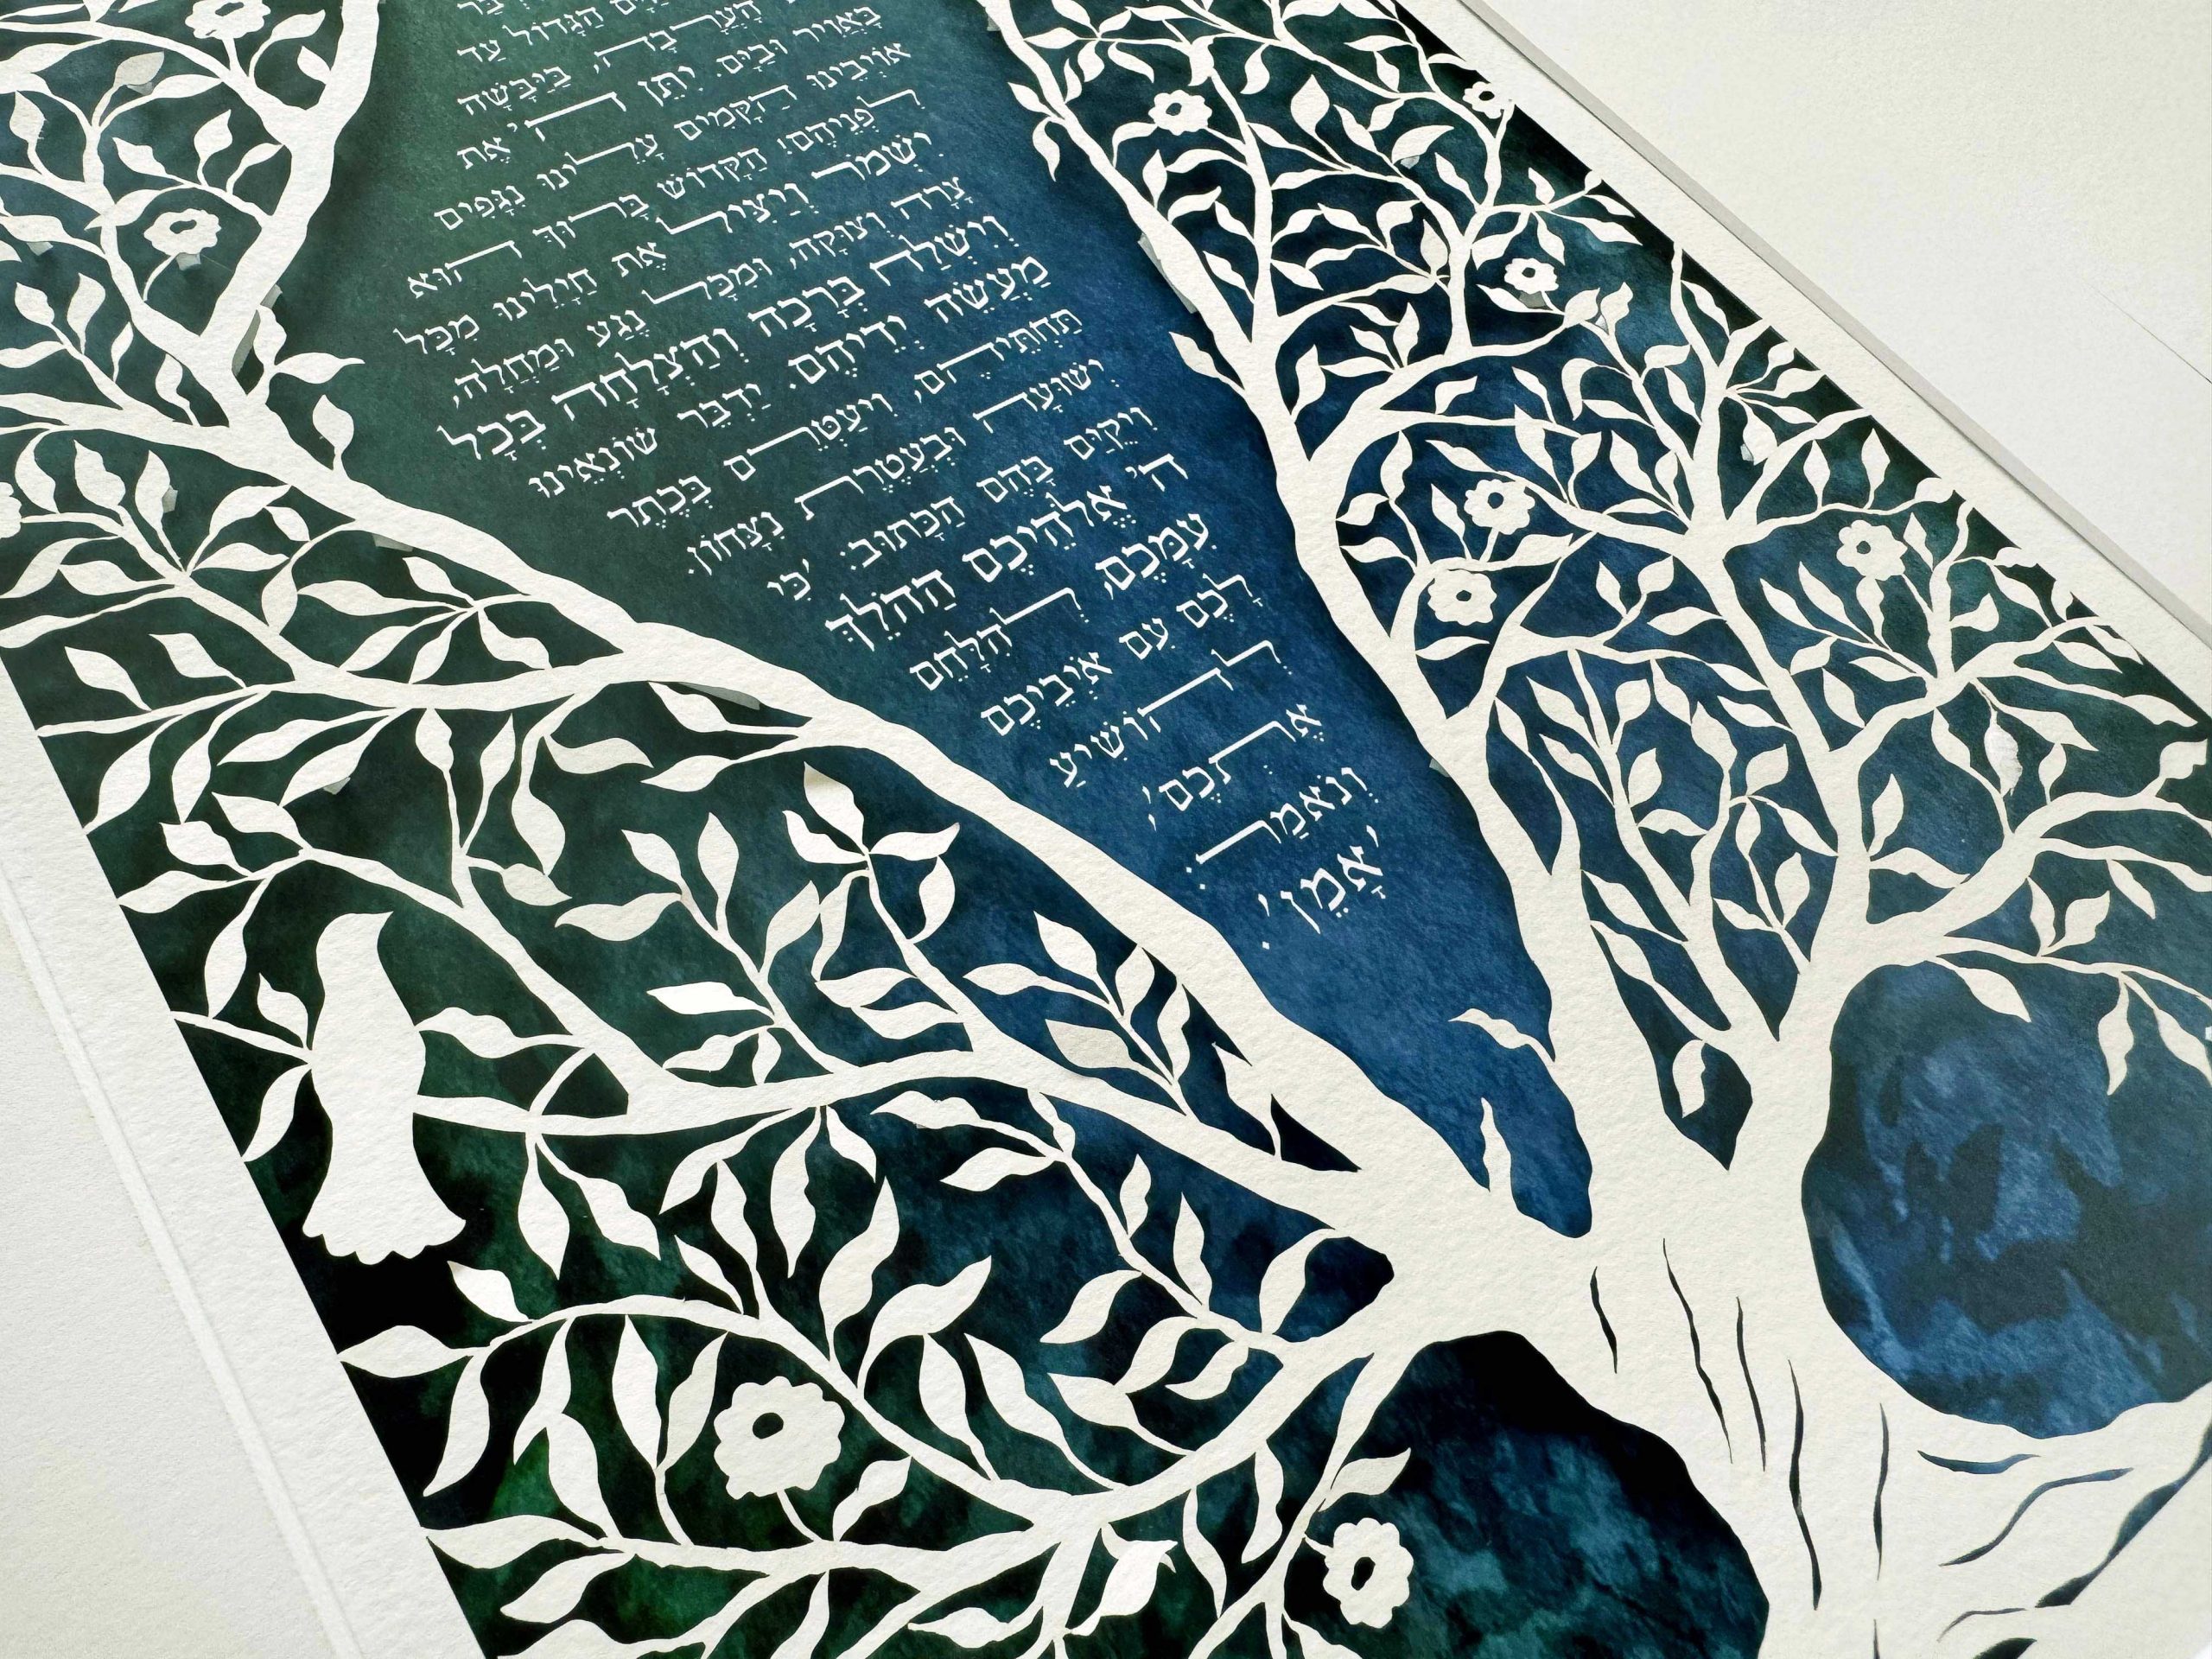 הַגָּדוֹל עַד
הָעֲרָבָה, בַּיַּבָּשָׁה
בָּאֲוִיר וּבַיָּם. יִתֵּן ה' אֶת
אוֹיְבֵינוּ הַקָּמִים עָלֵינוּ נִגָּפִים
לִפְנֵיהֶם! הַקָּדוֹשׁ בָּרוּךְ הוּא
יִשְׁמֹר וְיַצִּיל אֶת חַיָּלֵינוּ מִכָּל
צָרָה וְצוּקָה, וּמִכָּל נֶגַע וּמַחֲלָה,
וְיִשְׁלַח בְּרָכָה וְהַצְלָחָה בְּכָל
מַעֲשֵׂה יְדֵיהֶם. יַדְבֵּר שׂוֹנְאֵינוּ
תַּחְתֵּיהֶם, וִיעַטְּרֵם בְּכֶתֶר
יְשׁוּעָה וּבַעֲטֶרֶת נִצָּחוֹן.
וִיקַיֵּם בָּהֶם הַכָּתוּב: 'כִּי
ה' אֱלֹהֵיכֶם הַהֹלֵךְ
עִמָּכֶם, לְהִלָּחֵם
לָכֶם עִם אֹיְבֵיכֶם
לְהוֹשִׁיעַ
אֶתְכֶם',
וְנֹאמַר:
'אָמֵן'.